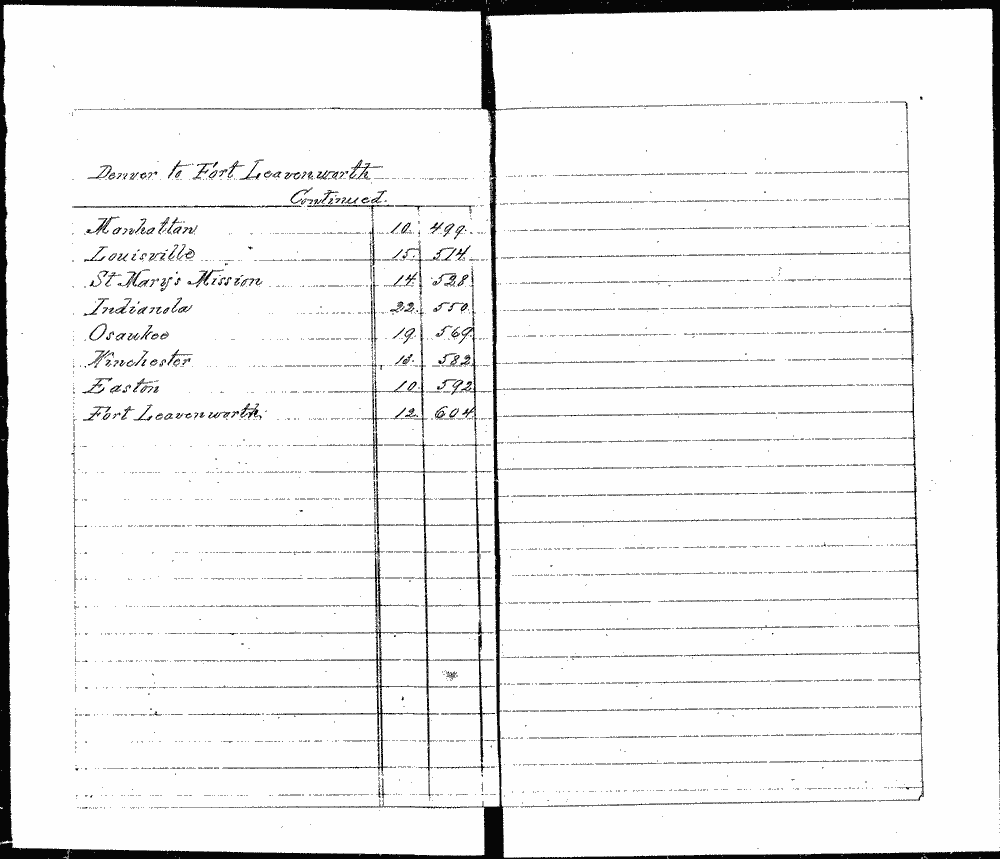 Denver to Fort Leavenworth
Continued.
Manhattan 10. 499.
Louisville 15. 514.
St Mary's Mission 14. 528
Indianola 22. 550
Osaukee 19. 569
Winchester 13. 582
Easton 10. 592
Fort Leavenworth. 12. 604